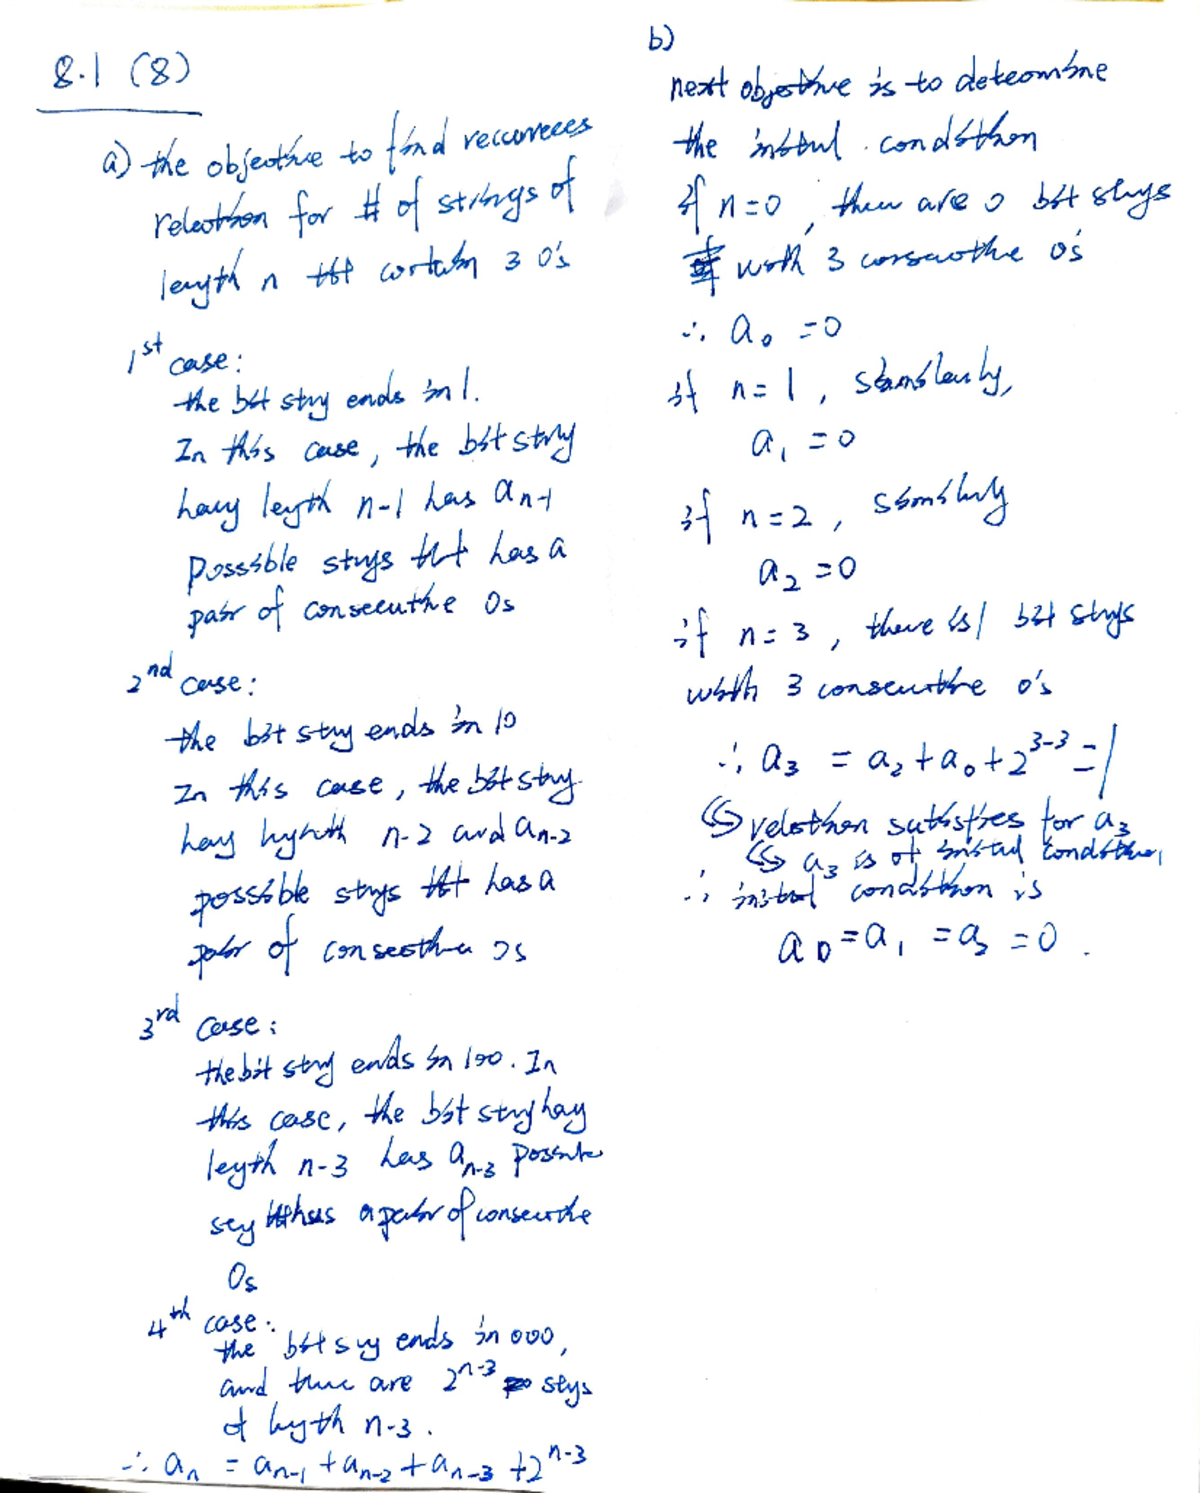 8.1 (8)
a) the objective to find reccurreces
relection for # of strings of
length n tht contain 3 0's
1st case:
the bit string ends in 1.
In this case, the bit string
having length n-1 has an-1
possible strings tht has a
pair of consecutive 0s
2nd case:
the bit string ends in 10
In this case, the bit string
having length n-2 and an-2
possible strings tht has a
pair of consecutive 0s
3rd case:
the bit string ends in 100. In
this case, the bit string having
length n-3 has an-3 possible
a pair of consecutive
0s
4th case:
the bit string ends in 000,
and there are 2^n-3 strings
of length n-3.
∴ an = an-1 + an-2 + an-3 + 2^n-3
b)
next objective is to determine
the initial condition
if n=0, then are 0 bit strings
with 3 consecutive 0s
∴ a0 = 0
if n=1, similarly,
a1 = 0
if n=2, similarly
a2 = 0
if n=3, there is 1 bit strings
with 3 consecutive 0's
∴ a3 = a2 + a0 + 2^3-3 = 1
relation satisfies for a3
a3 is of initial condition
∴ initial condition is
a0 = a1 = a3 = 0.